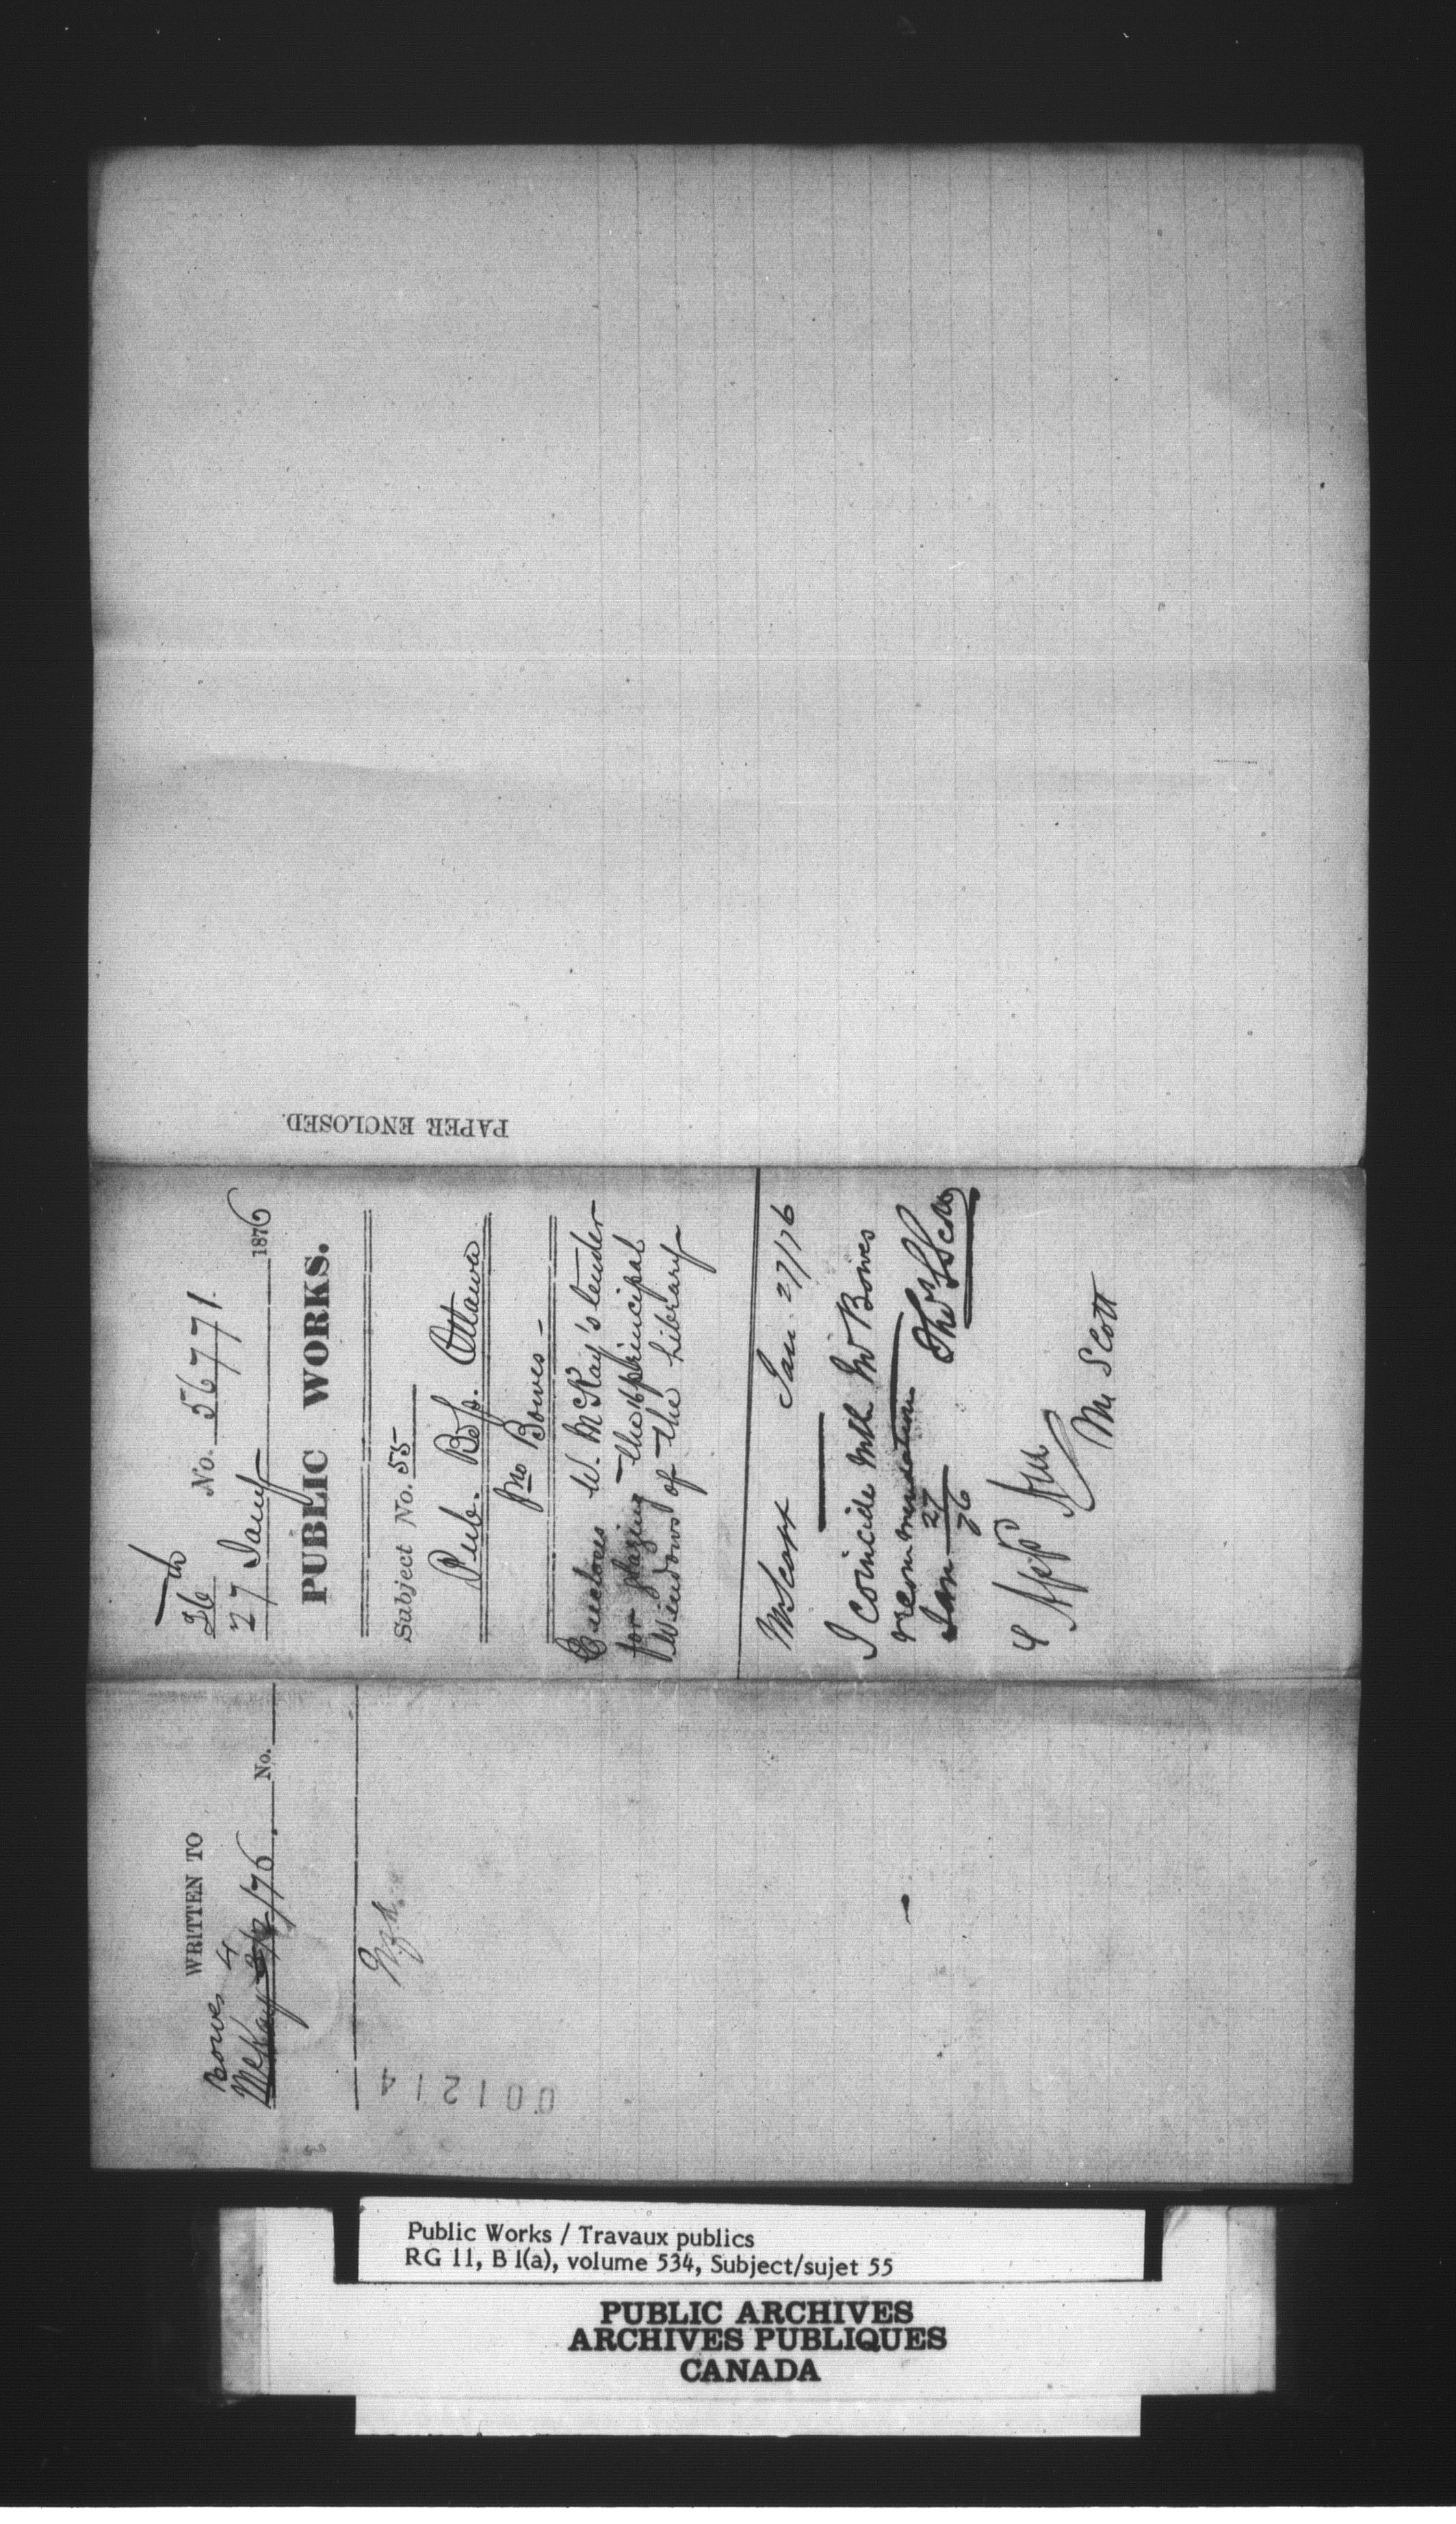 PAPER ENCLOSED.
26th
No. 56771.
27 Jany 1876
PUBLIC WORKS.
Subject No. 55
Pub. Bdgs. Ottawa
Jno Bowes -
Encloses W. McKay's tender
for glazing the 16 principal
Windows of the Library
Mr Scott Jan. 27/76
I coincide with Mr Bowes
recommendation
Jan 27/76 Thos S Scott
Mr Scott
WRITTEN TO
Bowes 4
McKay 3/2/76. No.
001214
Public Works / Travaux publics
RG 11, B 1(a), volume 534, Subject/sujet 55
PUBLIC ARCHIVES
ARCHIVES PUBLIQUES
CANADA